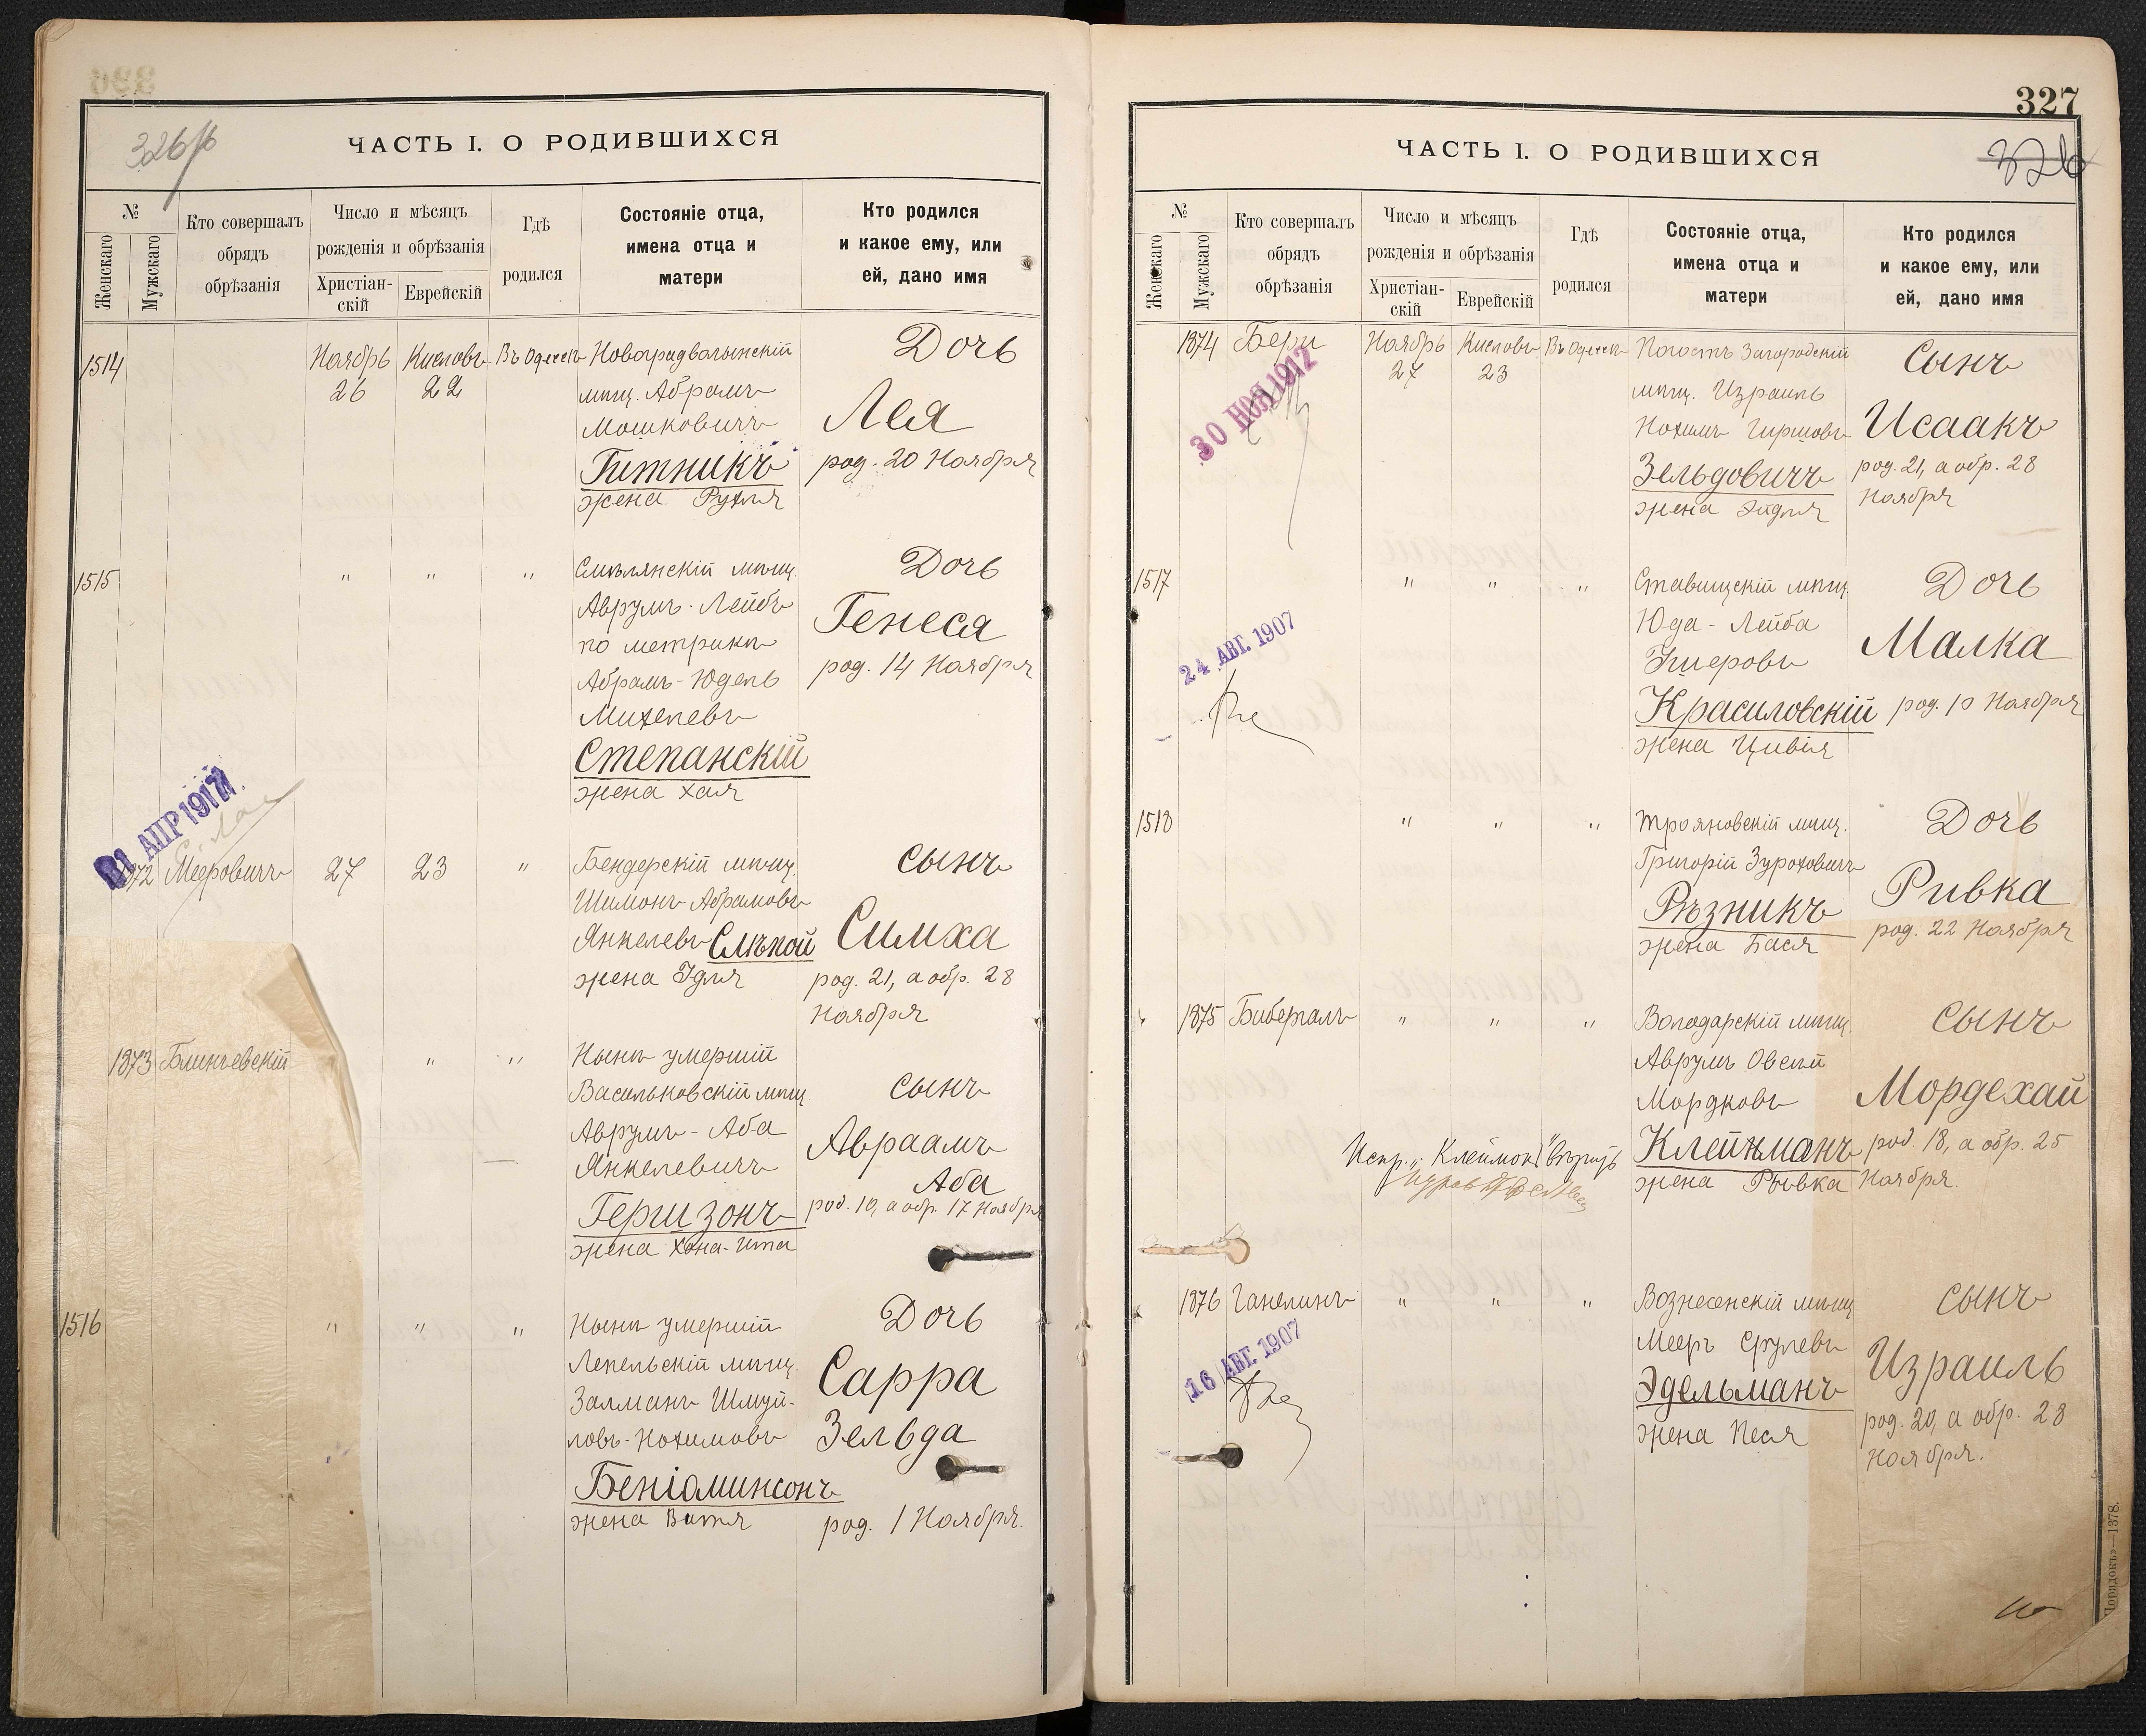 326
ЧАСТЬ I. О РОДИВШИХСЯ
№
Женскаго
Мужскаго
Кто совершалъ обрядъ обрѣзанія
Число и мѣсяцъ рожденія и обрѣзанія
Христіан-скій
Еврейскій
Гдѣ родился
Состояніе отца, имена отца и матери
Кто родился и какое ему, или ей, дано имя
1514
Ноябрь 26
Кислевъ 22
Въ Одессѣ
Новоградволынскій
мѣщ. Абрамъ
Мошковичъ
Гитникъ
жена Рухля
Дочь
Лея
род. 20 Ноября
1515
" " "
Смѣлянскій мѣщ.
Аврумъ-Лейбъ
по метрикѣ
Абрамъ-Юдель
Михелевъ
Степанскій
жена Хая
Дочь
Генеся
род. 14 Ноября
21 АПР 1917
1872
Мееровичъ
27
23
"
Бендерскій мѣщ.
Шимонъ Абрамовъ
Янкелевъ Слѣпой
жена Эдля
Сынъ
Симха
род. 21, а обр. 28
Ноября
1873
" "
Нынѣ умершій
Васильковскій мѣщ.
Аврумъ-Аба
Янкелевичъ
Гершзонъ
жена Хана-Ита
Сынъ
Авраамъ
Аба
род. 10, а обр. 17 Ноября
1516
" " "
Нынѣ умершій
Лепельскій мѣщ.
Залманъ Шмуй-
ловъ-Нохимовъ
Беніаминсонъ
жена
Дочь
Сарра
Зельда
род. 1 Ноября.
327
326
ЧАСТЬ I. О РОДИВШИХСЯ
№
Женскаго
Мужскаго
Кто совершалъ обрядъ обрѣзанія
Число и мѣсяцъ рожденія и обрѣзанія
Христіан-скій
Еврейскій
Гдѣ родился
Состояніе отца, имена отца и матери
Кто родился и какое ему, или ей, дано имя
1874
Бери
30 НОЯ 1912
Ноябрь 27
Кислевъ 23
Въ Одессѣ
Погостъ Загородскій
мѣщ. Израиль
Нохимъ Гиршовъ
Зельдовичъ
жена Эйдля
Сынъ
Исаакъ
род. 21, а обр. 28
Ноября
1517
" " "
24 АВГ. 1907
Ставищскій мѣщ.
Юда-Лейба
Красиловскій
жена Цивія
Дочь
Малка
род. 10 Ноября
1518
" " "
Трояновскій мѣщ.
Григорій Зуроховичъ
Рѣзникъ
жена Бася
Дочь
Ривка
род. 22 Ноября
1875
Биберталъ
" " "
Володарскій мѣщ.
Аврумъ Овсей
Мордковъ
Клейнманъ
жена Рывка
Сынъ
Мордехай
род. 18, а обр. 25
Ноября.
1876
Ганелинъ
16 АВГ. 1907
" " "
Вознесенскій мѣщ.
Мееръ Срулевъ
Эдельманъ
жена Песя
Сынъ
Израиль
род. 20, а обр. 28
Ноября.
Порядокъ—1378.